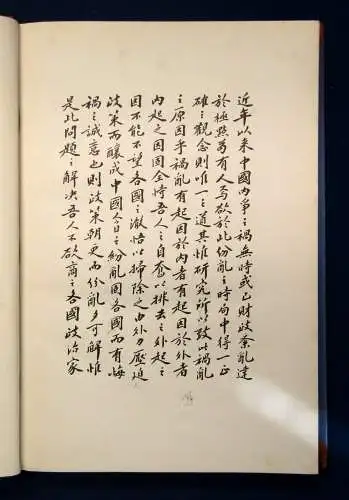 近年以来中國内争之禍無時或已財政紊亂達
於極點蓋有人焉欲於此份亂之時局中得一正
確之觀念則唯一之道其惟研究所以致此禍亂
之原因乎禍亂有起因於内者有起因於外者
内起之因固全恃吾人之自奮以排去之外起之
因不能不望各國之激悟以掃除之由外力壓迫
政策而釀成中國今日之紛亂固各國而有悔
禍之誠意也則政策朝更而份亂夕可解惟
是此問題之解决吾人不欲商之各國政治家